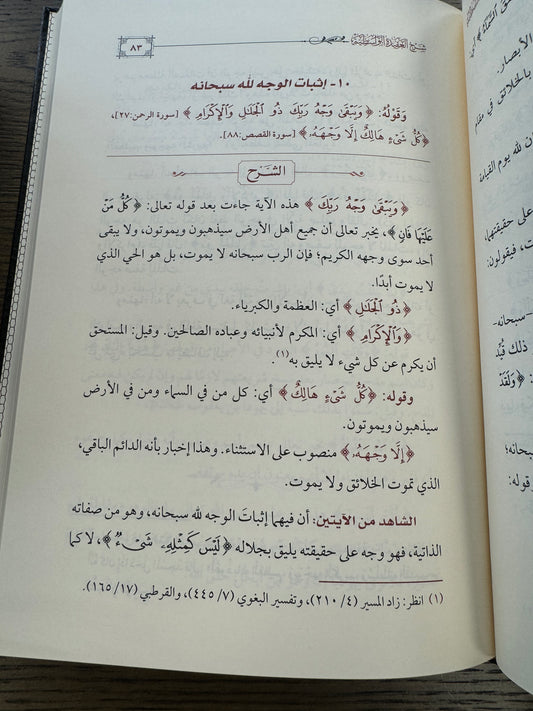 شرح العقيدة الواسطية
٨٣
١٠- إثبات الوجه لله سبحانه
وَقَوْلُهُ: ﴿وَيَبْقَىٰ وَجْهُ رَبِّكَ ذُو الْجَلَالِ وَالْإِكْرَامِ﴾ [سورة الرحمن:٢٧]،
﴿كُلُّ شَيْءٍ هَالِكٌ إِلَّا وَجْهَهُ﴾ [سورة القصص:٨٨].
الشَّرح
﴿وَيَبْقَىٰ وَجْهُ رَبِّكَ﴾ هذه الآية جاءت بعد قوله تعالى: ﴿كُلُّ مَنْ
عَلَيْهَا فَانٍ﴾، يخبر تعالى أن جميع أهل الأرض سيذهبون ويموتون، ولا يبقى
أحد سوى وجهه الكريم؛ فإن الرب سبحانه لا يموت، بل هو الحي الذي
لا يموت أبدًا.
﴿ذُو الْجَلَالِ﴾ أي: العظمة والكبرياء.
﴿وَالْإِكْرَامِ﴾ أي: المكرم لأنبيائه وعباده الصالحين. وقيل: المستحق
أن يكرم عن كل شيء لا يليق به(١).
وقوله: ﴿كُلُّ شَيْءٍ هَالِكٌ﴾ أي: كل من في السماء ومن في الأرض
سيذهبون ويموتون.
﴿إِلَّا وَجْهَهُ﴾ منصوب على الاستثناء. وهذا إخبار بأنه الدائم الباقي،
الذي تموت الخلائق ولا يموت.
الشاهد من الآيتين: أن فيهما إثباتَ الوجه لله سبحانه، وهو من صفاته
الذاتية، فهو وجه على حقيقته يليق بجلاله ﴿لَيْسَ كَمِثْلِهِ شَيْءٌ﴾، لا كما
(١) انظر: زاد المسير (٤/ ٢١٠)، وتفسير البغوي (٧/ ٤٤٥)، والقرطبي (١٧/ ١٦٥).
الأبصار.
بالخلائق في مقام
لله يوم القيامة
على حقيقتها،
ت، فيقولون:
-سبحانه-
ذلك
﴿وَلَقَدْ
سبحانه؛
قوله: